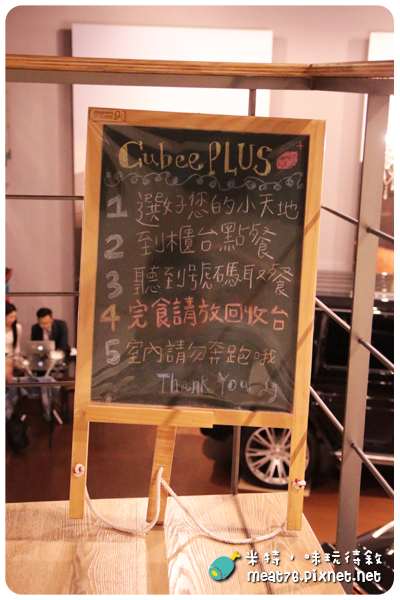 Cubee PLUS
1 選好您的小天地
2 到櫃台點餐
3 聽到號碼取餐
4 完食請放回收台
5 室內請勿奔跑哦
Thank You
米特，味玩待敘
meat76.pixnet.net